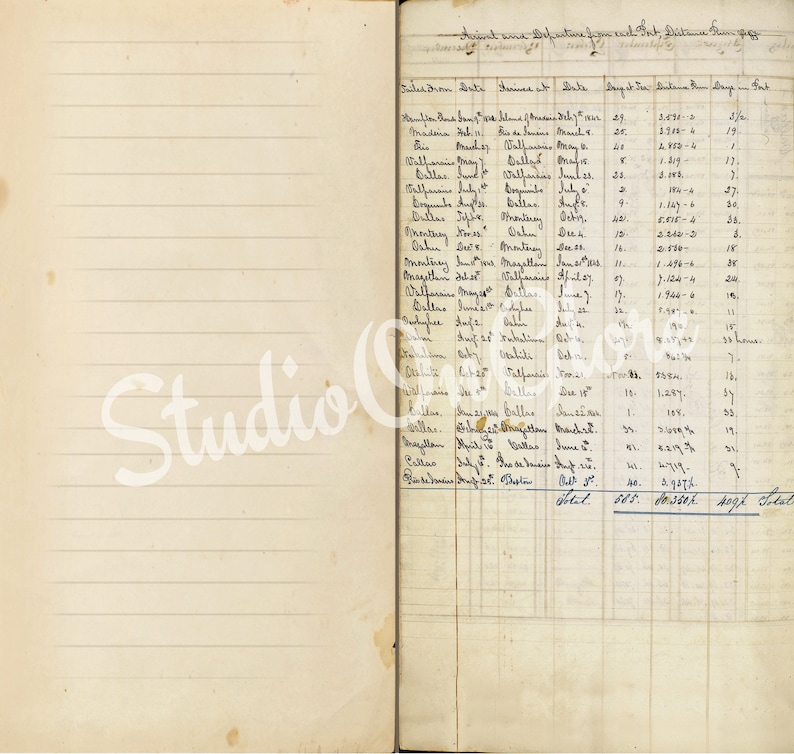 Arrival and Departure from each Port, Distance Run
Sailed From Date Arrived at Date Days at Sea Distance Run Days in Port
Hampton Roads Jan 9th 1842 Island of Madeira Feb 7th 1842 29. 3.590-2 3/2
Madeira Feb. 11. Rio de Janeiro March 8. 25. 3.903-4 19.
Rio March 27. Valparaiso May 6. 40 4.852-4 1.
Valparaiso May 7. Callao May 15. 8. 1.319- 17.
Callao. June 1st Valparaiso June 23. 23. 3.083. 7.
Valparaiso July 1st Coquimbo July 3. 2. 184-4 27.
Coquimbo Aug. 30. Callao Aug 8. 9. 1.147-6 30.
Callao Sept 8. Monterey Oct 19. 42. 5.515-4 33.
Monterey Nov. 23. Oahu Dec 4. 12. 2.232-2 3.
Oahu Dec 8. Monterey Dec 23. 16. 2.536- 18
Monterey Jan 11th 1843. Mazatlan Jan 21st 1843. 11. 1.496-6 38
Mazatlan Feb. 28th Valparaiso April 27. 57. 7.124-4 24.
Valparaiso May 20th Callao June 7. 17. 1.944-6 13.
Callao June 21st Owhyhee July 22 32. 5.987-6 11
Owhyhee Aug. 2. Oahu Aug 4. 190. 15
Oahu Aug. 20th Nukahiva Oct 6. 47. 33 hours.
Nukahiva Oct 7. Otahiti Oct 12. 5. 7.
Otahiti Oct 20th Valparaiso Nov. 21. Nov. 33. 5384. 13.
Valparaiso Dec 5th Callao Dec 15th 10. 1.287. 37
Callao. Jan 21, 1844 Callao Jan 22d 1844. 1. 108. 33.
Callao. Mazatlan March 28th 33. 19.
Mazatlan April 16th Callao June 6th 51. 31.
Callao July 6th Rio de Janeiro Aug. 41. 4.719- 9.
Rio de Janeiro Aug. 25th Boston Oct. 3d 40. 3.937½.
Total. 585. 80.350½. 409½ Total
Studio